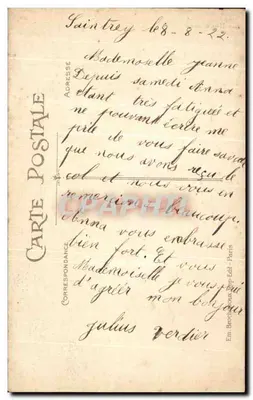 Saintrey le 8-8-22
Mademoiselle Jeanne
Depuis samedi Anna
étant très fatiguée et
ne pouvant écrire me
prie de vous faire savoir
que nous avons reçu le
col et nous vous en
remercions beaucoup.
Anna vous embrasse
bien fort. Et vous
Mademoiselle je vous prie
d'agréer mon bonjour
Julius Verdier
CARTE POSTALE
ADRESSE
CORRESPONDANCE
Paris
CHAPITRE